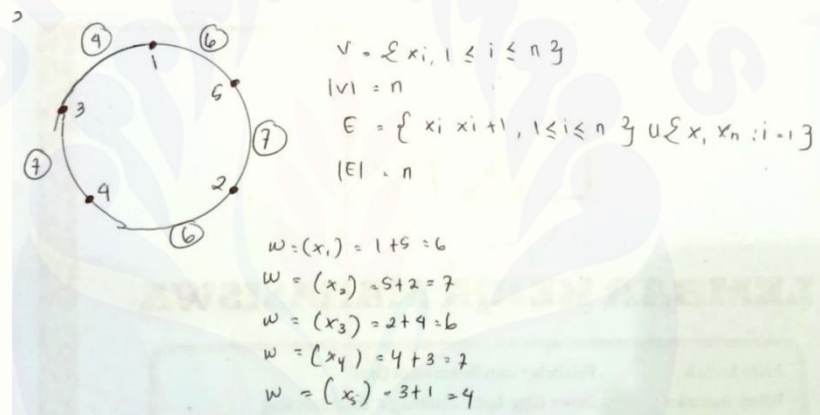 4
6
1
5
3
7
7
4
2
6
V = { xi, 1 ≤ i ≤ n }
|V| = n
E = { xi xi+1, 1 ≤ i ≤ n } U { x, xn : i = 1 }
|E| = n
w = (x1) = 1 + 5 = 6
w = (x2) = 5 + 2 = 7
w = (x3) = 2 + 4 = 6
w = (x4) = 4 + 3 = 7
w = (x5) = 3 + 1 = 4